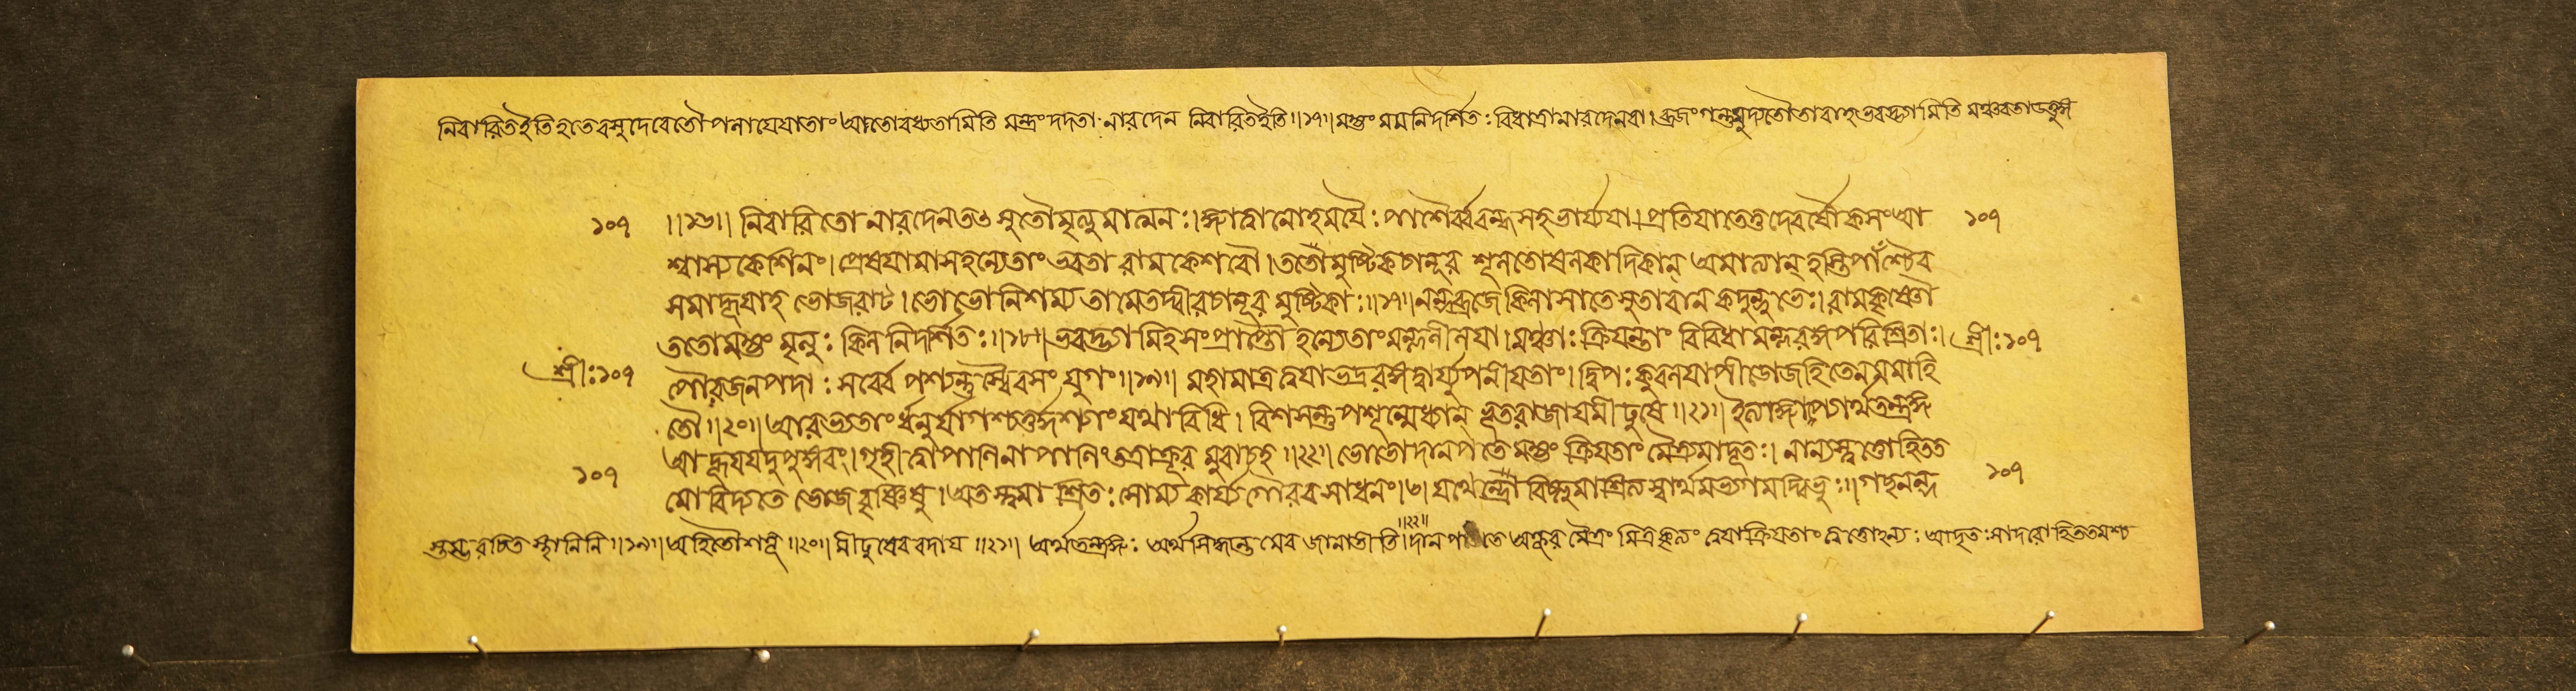 নিবারিতইতিহতেবসুদেবেতৌপলাযেযাতাং অতোবধ্যতামিতি মন্ত্রং দদতা নারদেন নিবারিতইতি॥১৭॥ মহ্যং মমনিদর্শিত: বিধাত্রানারদেনবা। ব্রজংগন্তুমুদ্যতৌতাবাহভবদ্ভ্যামিতি মঞ্চবতাডতুঙ্গ
১০৭ ॥১৬॥ নিবারিতো নারদেনতৎ সুতৌমৃত্যুমাত্মন:।জ্ঞাত্বালোহময়ৈ: পাশৈর্ব্ববন্ধসহভার্য্যযা। প্রতিযাতেতুদেবর্ষৌকংসংআ ১০৭
শ্বাস্যকেশিনং। প্রেষযামাসহন্যেতাং ভবতা রামকেশবৌ। ততোমুষ্টিকচানূর শলতোষলকাদিকান্ অমাত্যান্ হস্তিপাঁশ্চৈব
সমাহূযাহ ভোজরাট। ভোভোনিশম্য তামেতদ্বীরচানূর মুষ্টিকা:॥১৭॥নন্দব্রজে কিলাসাতে সুতাবানকদুন্দুভে:। রামকৃষ্ণৌ
ততোমহ্যং মৃত্যু: কিল নিদর্শিত:॥১৮॥ ভবদ্ভ্যামিহসংপ্রাপ্তৌ হন্যেতাংমল্ললীলযা। মঞ্চা: ক্রিযন্তাং বিবিধামল্লরঙ্গপরিশ্রিতা:। শ্রী:১০৭
শ্রী:১০৭ পৌরজনপদা: সর্ব্বে পশ্যন্তুস্বৈরসং যুগং॥১৯॥ মহামাত্র ত্বযাভদ্ররঙ্গদ্বার্য্যুপনীযতাং। দ্বিপ: কুবলযাপীডোজহিতেনমমাহি
তৌ॥২০॥ আরভ্যতাংর্ধনুর্যাগশ্চতুর্দ্দশ্যাং যথা বিধি। বিশসন্তু পশূন্মেধ্যান্ ভূতরাজাযমীঢুষে॥২১॥ ইত্যাজ্ঞাপ্যার্থতন্ত্রজ্ঞ
আহূযযদুপুঙ্গবং। গৃহীত্বা পাণিনাপাণিং ততোক্রূর মুবাচহ॥২২॥ ভোভোদানপতে মহ্যং ক্রিযতাং মৈত্রমাদৃত:। নান্যস্ত্বত্তোহিতত
১০৭ মো বিদ্যতে ভোজবৃষ্ণিষু। অতস্ত্বমা শ্রিত: সৌম্য কার্য্যগৌরবসাধনং। যথেন্দ্রো বিষ্ণুমাশ্রিত্য স্বার্থমধ্যগমদ্বিভু:॥গছনন্দ ১০৭
স্তম্ভরচিত স্থানিনি॥১৯॥ অহিতৌশত্রূ॥২০॥ মীঢুষেবরদায॥২১॥ অর্থতন্ত্রজ্ঞ: অর্থসিদ্ধান্তমেব জানাতীতি॥২২॥দানপতে অক্রূর মৈত্রং মিত্রকৃত্যং ত্বযাক্রিযতাং ত্বত্তোহন্য: আদৃত:সাদরোহিততমশ্চ